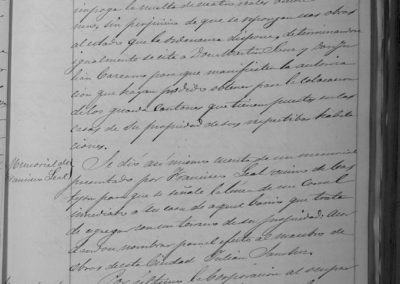 imponga la multa de cuatro reales
uno, sin perjuicio de que se repongan sus obras
al estado que la ordenanza dispone, determinandose
igualmente se cite a Don Martin Sanz y
para que manifiesten la autoriza
cion que hayan podido obtener para la colocacion
de los guarda cantones que tienen puestos en las
casas de su propiedad de sus respetibas habita
ciones.
Memorial de
Francisco Leal
Se dio asi mismo cuenta de un memorial
presentado por Francisco Leal vecino de
para que se señale la linea de un corral
inmediato a las casas de aquel barrio que trata
de agregar con un terreno de su propiedad.
nombrar para el efecto al maestro de
obras de esta Ciudad Julian Sanchez.
Por ultimo la Corporacion al